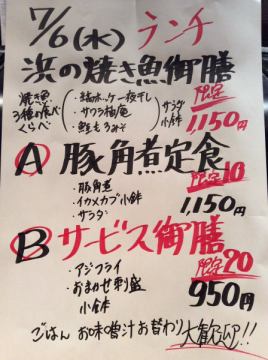 7/6(水) ランチ
浜の焼き魚御膳
焼き魚3種の食べくらべ
・縞ホッケ一夜干し
・サワラ柚庵
・鮭もろみそ
サラダ
小鉢
限定
1,150円
A 豚角煮定食
限定10
・豚角煮
・イカメカブ小鉢
・サラダ
1,150円
B サービス御膳
限定20
・アジフライ
・おまかせ刺盛
小鉢
950円
ごはん お味噌汁お替わり大歓迎!!